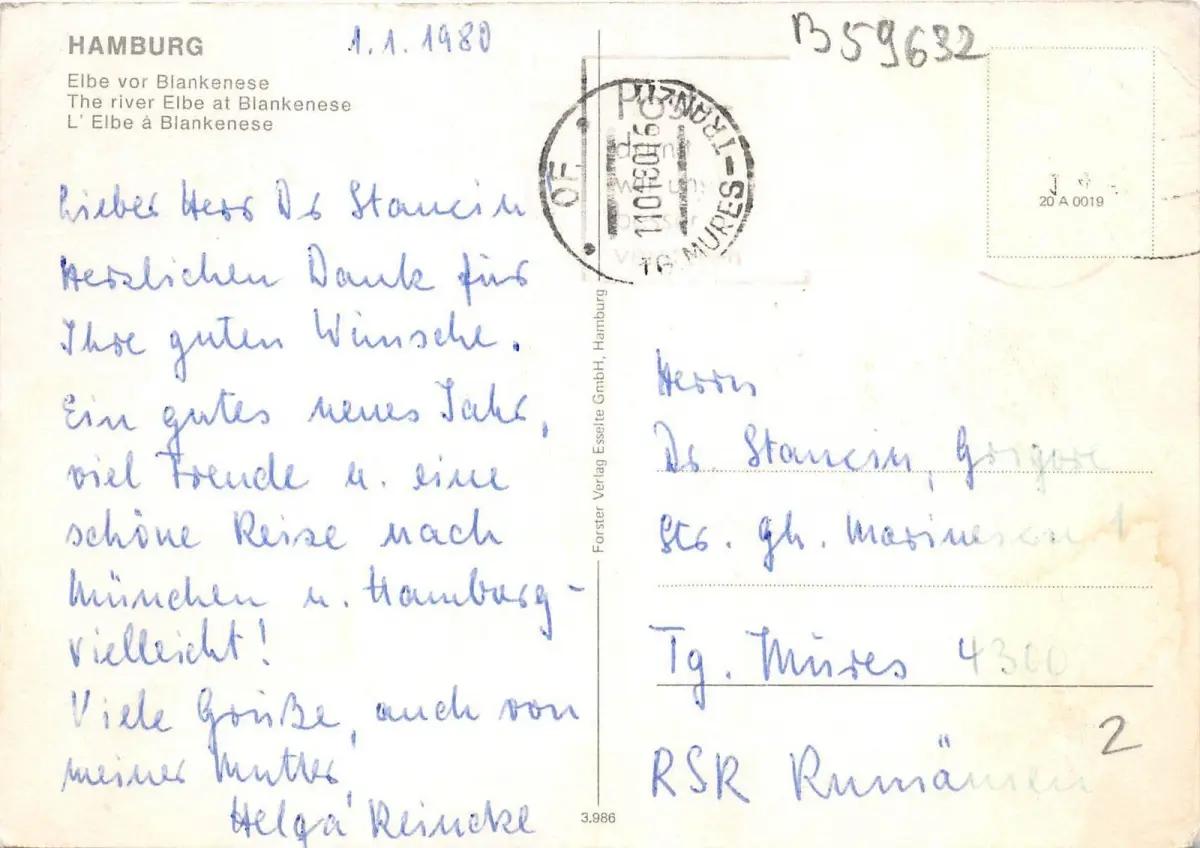 HAMBURG
1.1.1980
B59632
Elbe vor Blankenese
The river Elbe at Blankenese
L' Elbe à Blankenese
Lieber Herr Dr Stancin
Herzlichen Dank für
Ihre guten Wünsche.
Ein gutes neues Jahr,
viel Freude u. eine
schöne Reise nach
München u. Hamburg -
vielleicht!
Viele Grüße, auch von
meiner Mutter,
Helga Reincke
OF
TRANZIT
TG. MURES
Forster Verlag Esselte GmbH, Hamburg
3.986
20 A 0019
Herrn
Dr. Stancin, Grigore
Str. Gh. Marinescu 1
Tg. Mures 4300
RSR Rumänien
2